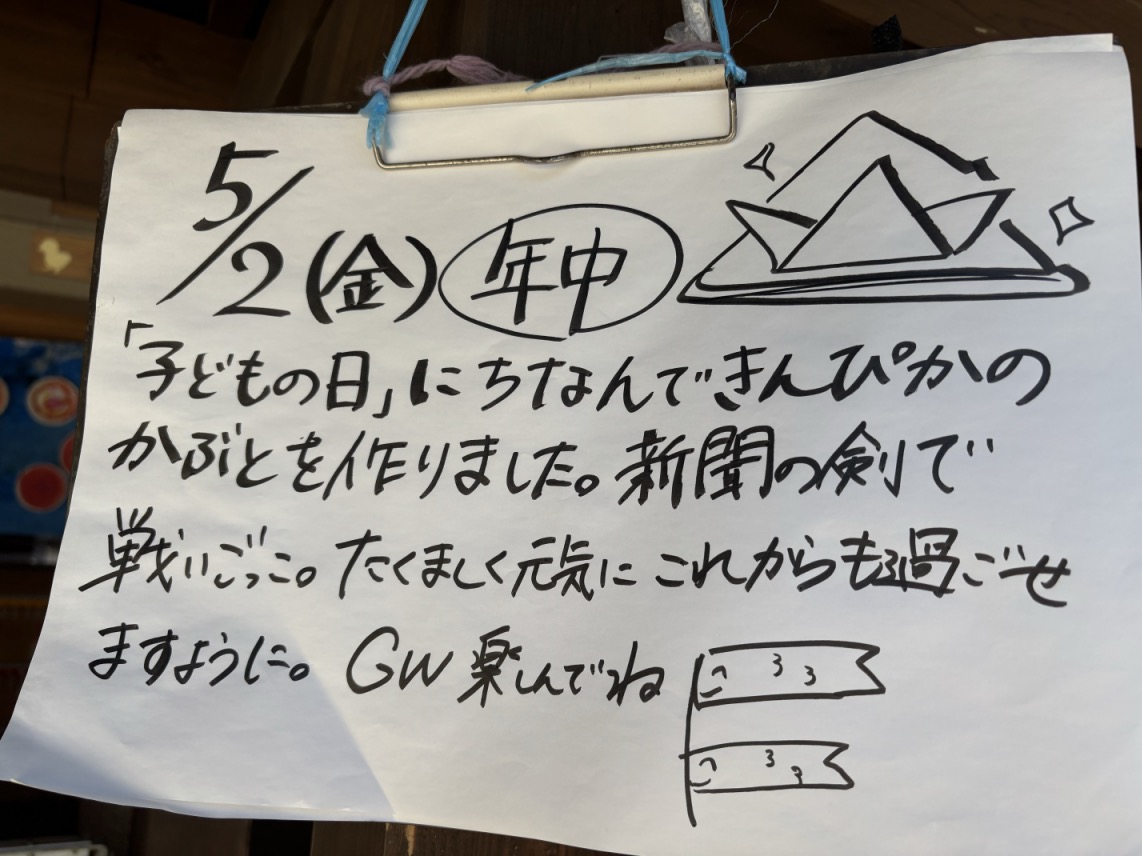 5/2(金) 年中
「子どもの日」にちなんできんぴかの
かぶとを作りました。新聞の剣で
戦いごっこ。たくましく元気にこれからも過ごせ
ますように。GW楽しんでね